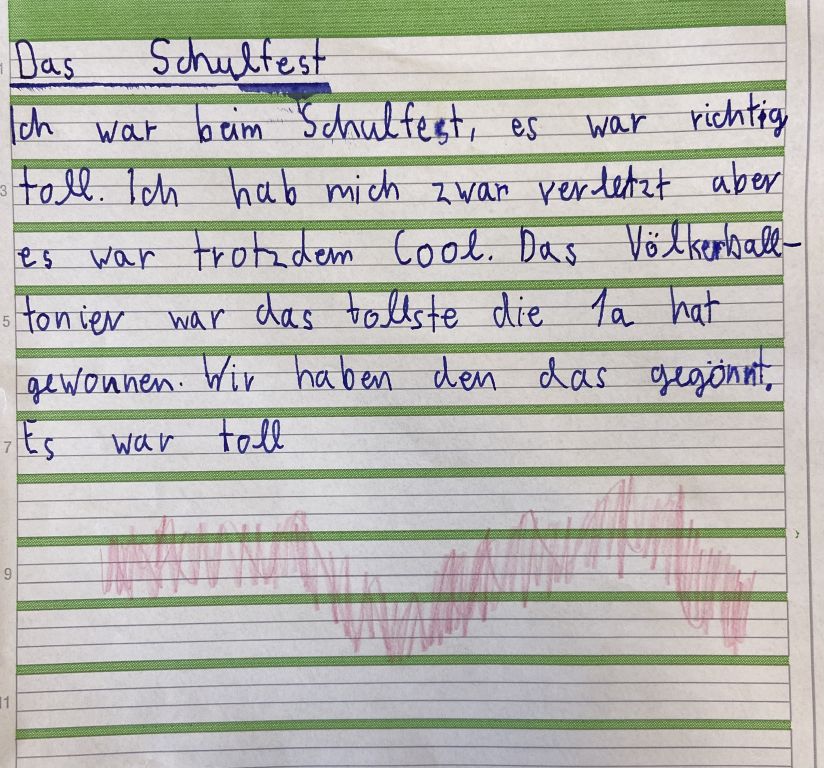 Das Schulfest
Ich war beim Schulfest, es war richtig
toll. Ich hab mich zwar verletzt aber
es war trotzdem Cool. Das Völkerball-
tonier war das tollste die 1a hat
gewonnen. Wir haben den das gegönnt.
Es war toll